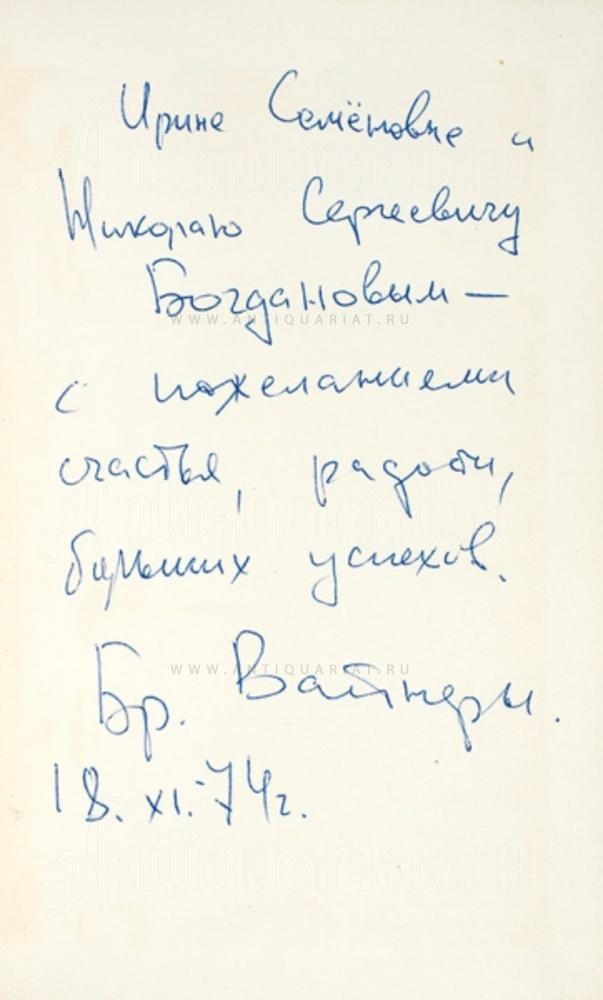 WWW.ANTIQUARIAT.RU
Ирине Семёновне и
Николаю Сергеевичу
Богдановым —
WWW.ANTIQUARIAT.RU
с пожеланиями
счастья, радости,
больших успехов.
WWW.ANTIQUARIAT.RU
Бр. Вайнеры.
18. XI.-74г.
Antiquariat.ru